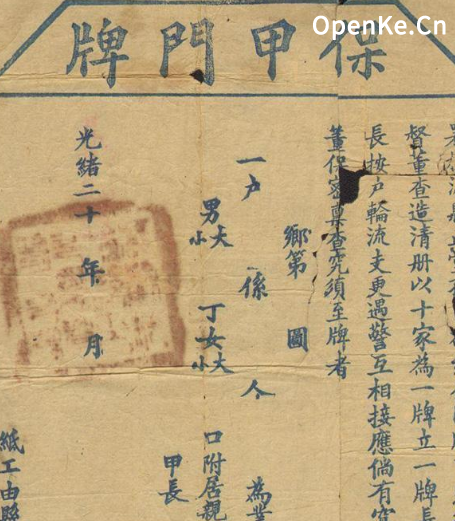 OpenKe.Cn
保甲門牌
督董查造清册以十家為一牌立一牌長
長按戶輪流支更遇警互相接應倘有
董保密稟查究須至牌者
鄉第 圖
一戶 係 人 為業
男大小 丁女大小 口附居親
甲長
光緒二十 年 月
紙工由縣